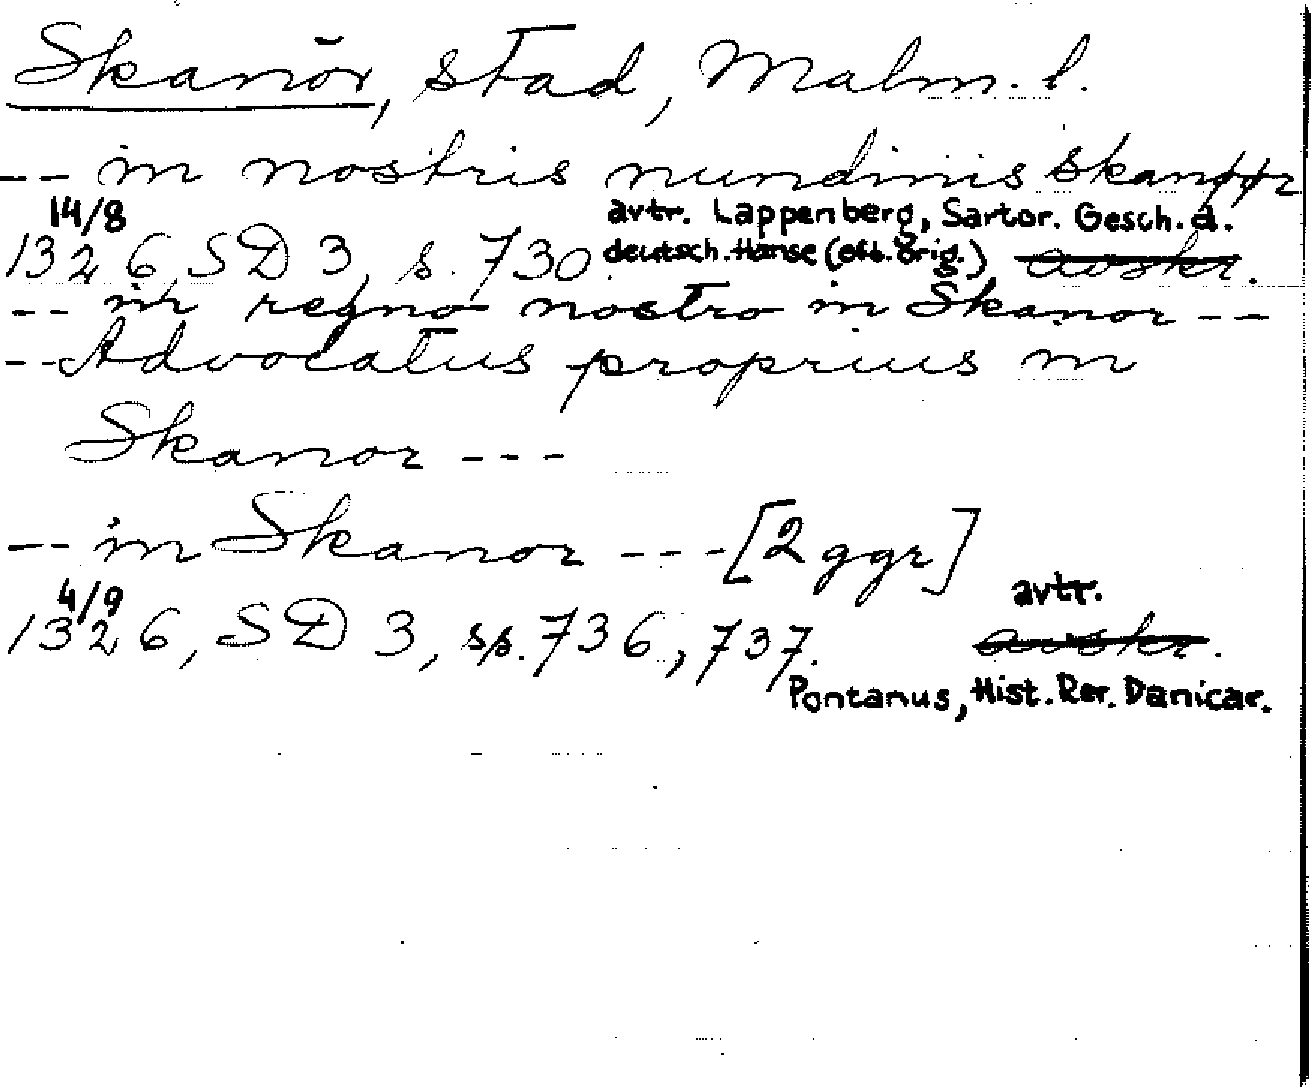 Skanör, stad, Malm. l.
-- in nostris nundinis Skanøør
14/8 avtr. Lappenberg, Sartor. Gesch. d.
1326, SD 3, s. 730 deutsch. Hanse (eft. orig.) avskr.
-- in regno nostro in Skanor --
-- Advocatus proprius in
Skanor ---
-- in Skanor --- [2 ggr]
4/9 avtr.
1326, SD 3, ss. 736, 737. avskr.
Pontanus, Hist. Rer. Danicar.